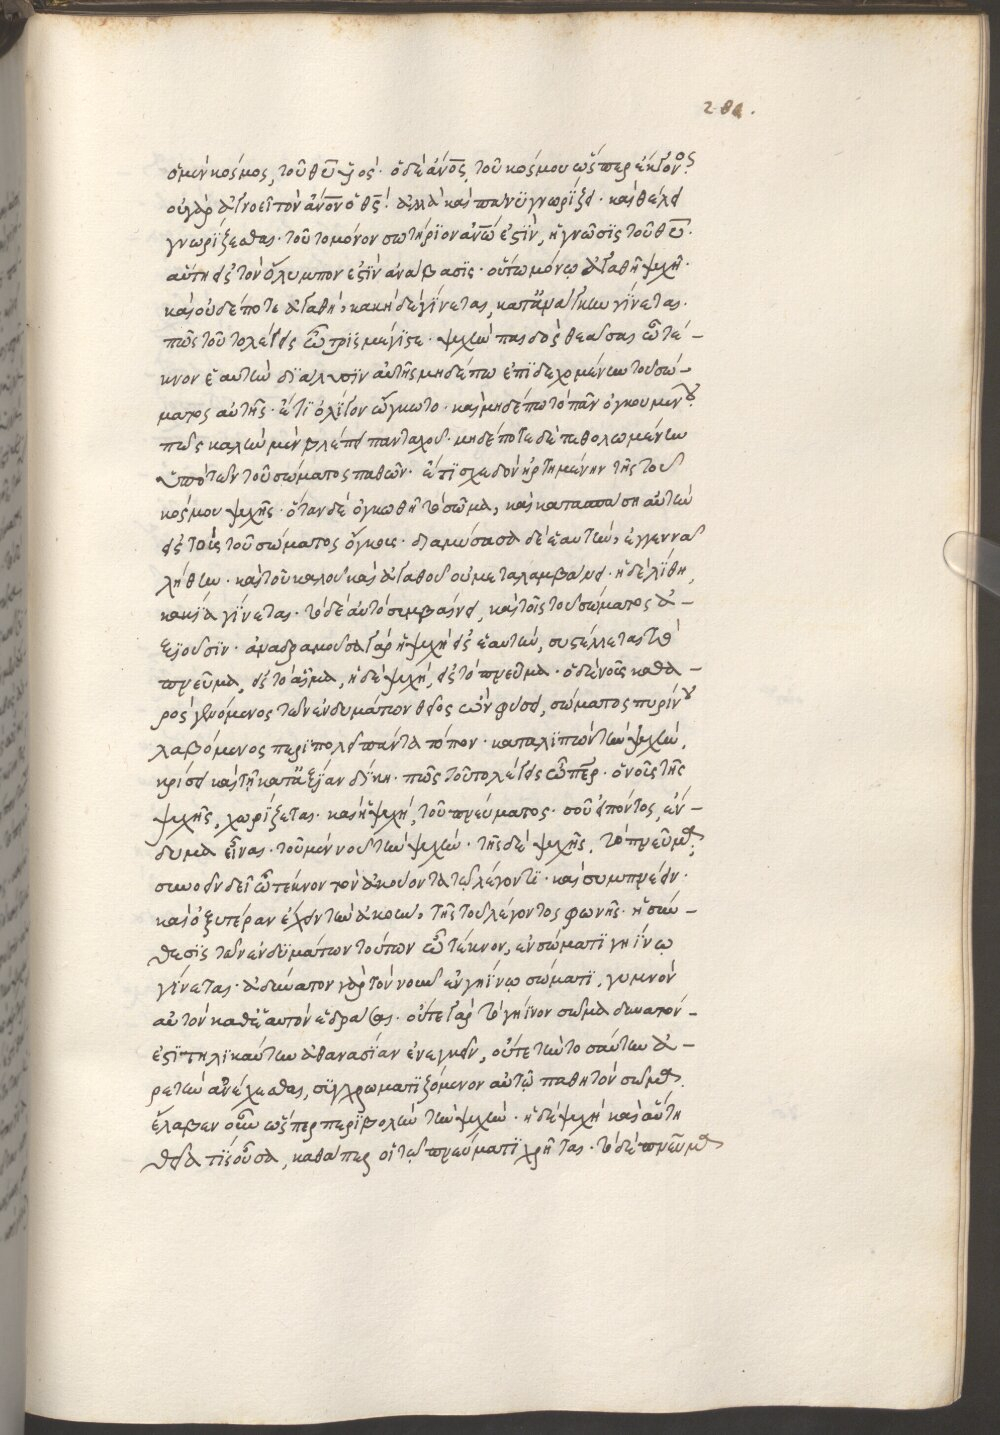 281.
ὁ μὲν κόσμος, τοῦ θῦ ὑιός· ὁ δὲ ἄνος, τοῦ κόσμου ὥσπερ ἔκγονος.
οὐ γὰρ ἀγνοεῖ τὸν ἄνον ὁ θς· ἀλλὰ καὶ πάνυ γνωρίζει· καὶ θέλει
γνωρίζεσθαι· τοῦτο μόνον σωτήριον ἀνῶ ἐστίν, ἡ γνῶσις τοῦ θῦ.
αὕτη εἰς τὸν ὄλυμπον ἐστὶν ἀνάβασις· οὕτω μόνῳ ἀγαθὴ ψυχή·
καὶ οὐδέποτε ἀγαθή, κακὴ δὲ γίνεται, κατ' ἀνάγκην γίνεται.
πῶς τοῦτο λέγεις ὦ τρισμέγιστε· ψυχὴν παιδὸς θέασαι ὦ τέ-
κνον ἑαυτὴν διάλυσιν αὐτῆς μηδέπω ἐπιδεχομένην τοῦ σώ-
ματος αὐτῆς· ἔτι ὀλίγον ὤγκωτο· καὶ μηδέπω τὸ πᾶν ὀγκουμένου.
πῶς καλὴν μὲν βλέπει πανταχοῦ· μηδέποτε δὲ τεθολωμένην
ὑπὸ τῶν τοῦ σώματος παθῶν· ἔτι σχεδὸν ἠρτημένην τῆς τοῦ
κόσμου ψυχῆς· ὅταν δὲ ὀγκωθῇ τὸ σῶμα, καὶ κατασπάσῃ αὐτὴν
εἰς τοὺς τοῦ σώματος ὄγκους· διαλύσασα δὲ ἑαυτήν, ἐγγεννᾶ
λήθην· καὶ τοῦ καλοῦ καὶ ἀγαθοῦ οὐ μεταλαμβάνει· ἡ δὲ λήθη,
κακία γίνεται· τὸ δὲ αὐτὸ συμβαίνει, καὶ τοῖς τοῦ σώματος ἐ-
ξιοῦσιν· ἀναδραμοῦσα γὰρ ἡ ψυχὴ εἰς ἑαυτήν, συστέλλεται τὸ
πνεῦμα, εἰς τὸ αἷμα, ἡ δὲ ψυχή, εἰς τὸ πνεῦμα· ὁ δὲ νοῦς καθα-
ρὸς γενόμενος τῶν ἐνδυμάτων θεῖος ὢν φύσει, σώματος πυρίνου
λαβόμενος περιπολεῖ πάντα τόπον· καταλιπὼν τὴν ψυχήν,
κρίσει καὶ τῇ κατ' ἀξίαν δίκῃ· πῶς τοῦτο λέγεις ὦ περ· ὁ νοῦς τῆς
ψυχῆς, χωρίζεται· καὶ ἡ ψυχή, τοῦ πνεύματος· σοῦ εἰπόντος, ἐν-
δυμα εἶναι· τοῦ μὲν νοῦ τὴν ψυχήν· τῆς δὲ ψυχῆς, τὸ πνεῦμα;
συνοεῖν δεῖ ὦ τέκνον τὸν ἀκούοντα τῷ λέγοντι· καὶ συμπνέειν·
καὶ ὀξυτέραν ἔχειν τὴν ἀκοήν, τῆς τοῦ λέγοντος φωνῆς· ἡ σύν-
θεσις τῶν ἐνδυμάτων τούτων ὦ τέκνον, ἐν σώματι γηίνῳ
γίνεται· ἀδύνατον γὰρ τὸν νοῦν ἐν γηίνῳ σώματι, γυμνὸν
αὐτὸν καθ' ἑαυτὸν ἑδράσαι· οὔτε γὰρ τὸ γήινον σῶμα δυνατόν-
ἐστι τηλικαύτην ἀθανασίαν ἐνεγκεῖν, οὔτε τὴν τοσαύτην ἀ-
ρετὴν ἀνέχεσθαι, συγχρωματιζόμενον αὐτῷ παθητὸν σῶμα.
ἔλαβεν οὖν ὥσπερ περιβολὴν τὴν ψυχήν· ἡ δὲ ψυχὴ καὶ αὕτη
θεία τις οὖσα, καθάπερ οἱ τῷ πνεύματι χρῆται· τὸ δὲ πνεῦμα